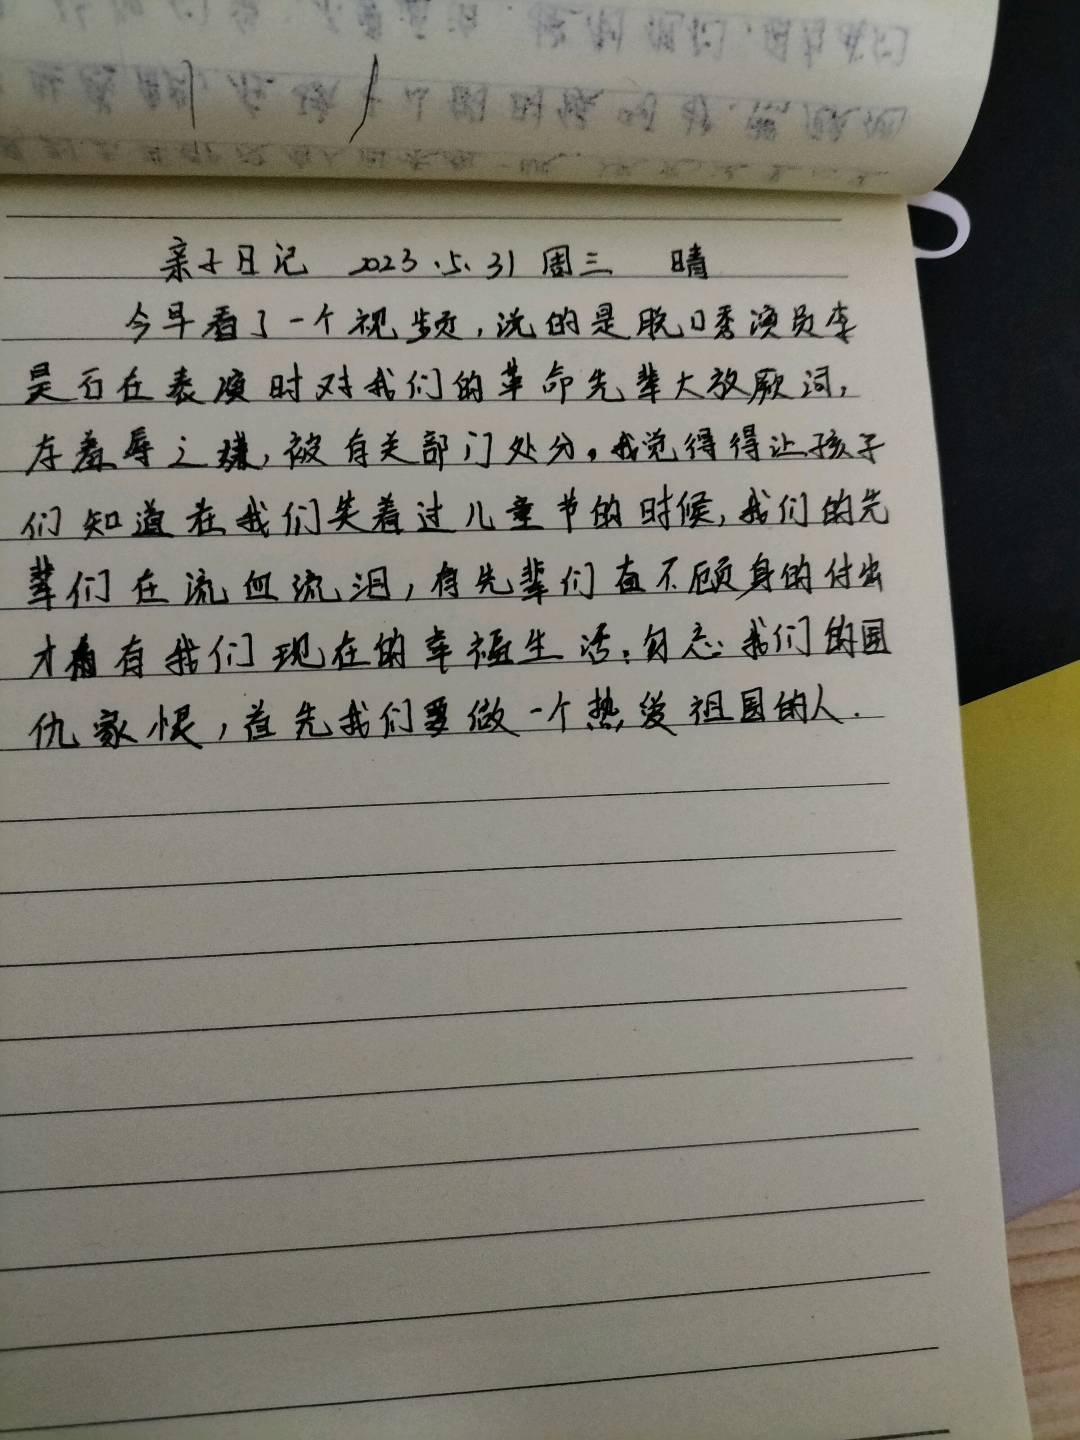 亲子日记 2023.5.31 周三 晴
今早看了一个视频,说的是脱口秀演员李
昊石在表演时对我们的革命先辈大放厥词,
存羞辱之嫌,被有关部门处分。我觉得得让孩子
们知道在我们笑着过儿童节的时候,我们的先
辈们在流血流泪,有先辈们奋不顾身的付出
才有我们现在的幸福生活,勿忘我们的国
仇家恨,首先我们要做一个热爱祖国的人.